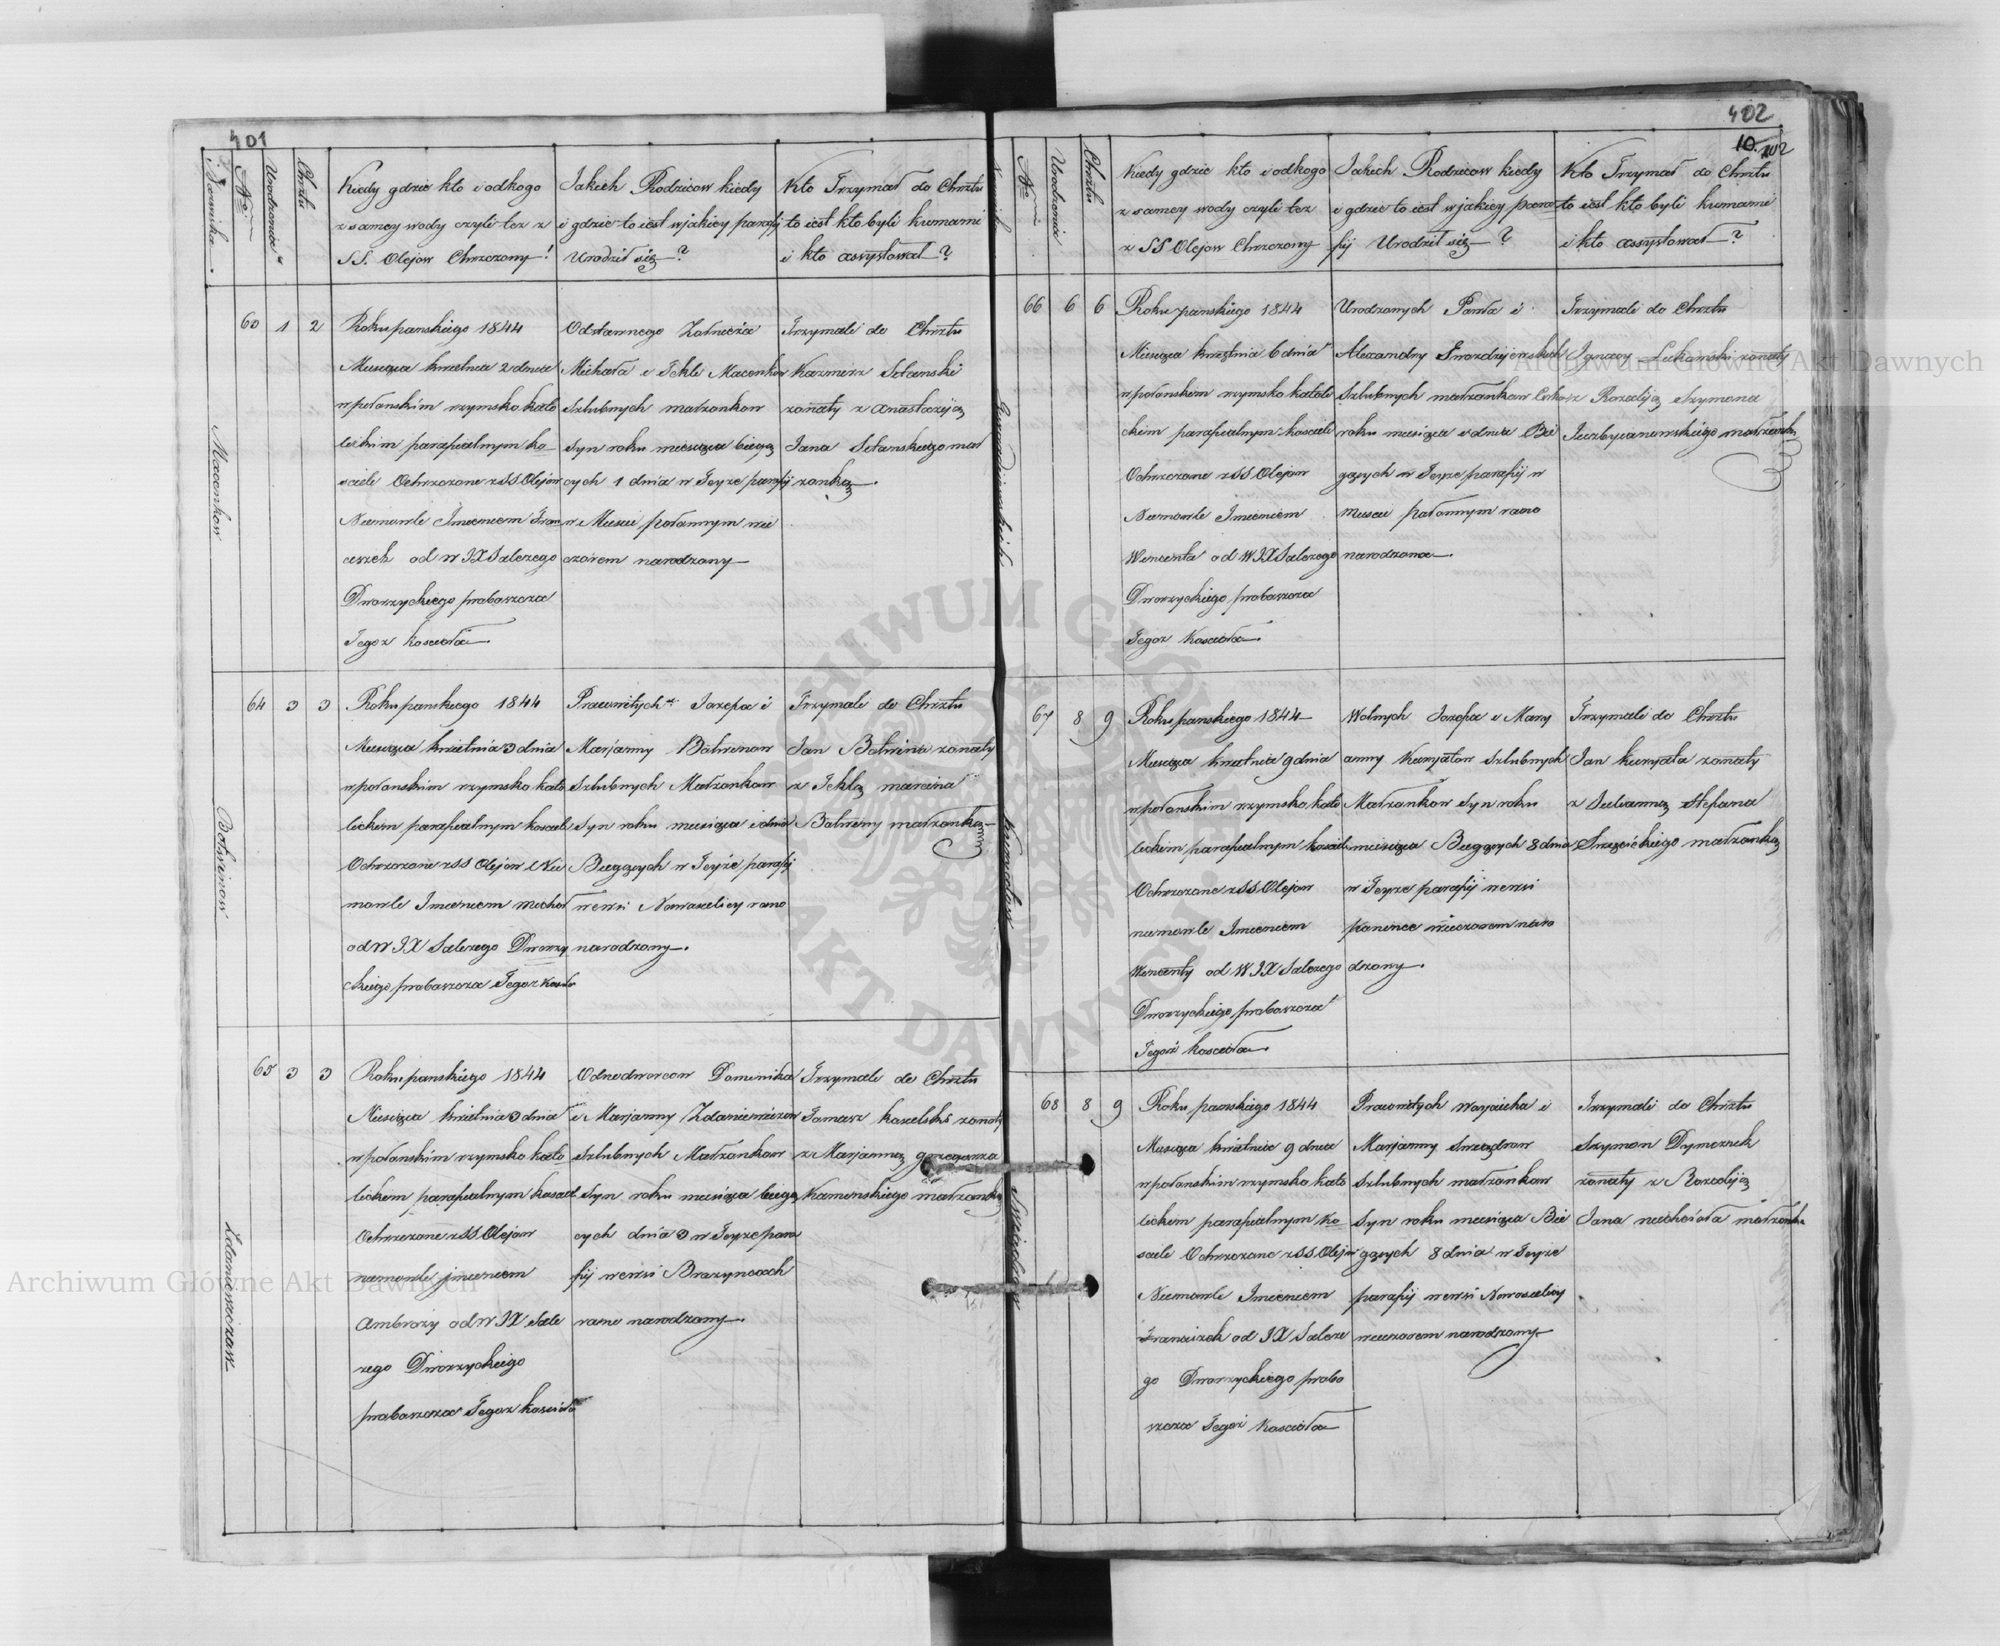 401
Nazwiska.
No
Urodzenia
Chrztu
Kiedy gdzie kto i odkogo
z samey wody czyli tez z
SS. Olejow Chrzczony!
Jakich Rodzicow kiedy
i gdzie to iest wjakiey parafij
Urodził się ?
Kto Trzymał do Chrztu
to iest kto byli kumami
i kto assystował ?
Maconkow
1 2
Roku panskiego 1844
Miesiąca kwietnia 2 dnia
w połanskim rzymsko kato
lickim parafialnym ko
sciele Ochrzczone z SS Olejow
Niemowle Jmieniem Fran
ciszek od W JX Salezego
Dworzyckiego probaszcza
Tegoz koscioła
Odstawnego Zołnierza
Michała i Tekli Maconkow
Szlubnych małzonkow
Syn roku miesiąca bieżą
cych 1 dnia w Teyze parafij
w Miescie połannym wie
czorem narodzony
Trzymali do Chrztu
Kazmierz Sołanski
zonaty z Anastazyią
Jana Sołanskiego mał
zonką.
Botwinow
64 3 3
Roku panskiego 1844
Miesiąca kwietnia 3 dnia
w połanskim rzymsko kato
lickim parafialnym kosciele
Ochrzczone z SS Olejow Nie
mowle Jmieniem Michał
od W JX Salezego Dworzy
ckiego probaszcza Tegoz koscio
Pracowitych Jozefa i
Marjanny Botwinow
Szlubnych Małzonkow
Syn roku miesiąca i dnia
Biegących w Teyże parafij
we wsi Nowosielicy rano
narodzony.
Trzymali do Chrztu
Jan Botwina zonaty
z Teklą marcina
Botwiny małzonką
Zdaniewiczow
65 3 3
Roku panskiego 1844
Miesiąca kwietnia 3 dnia
w połanskim rzymsko kato
lickim parafialnym kosciel
Ochrzczone z SS Olejow
niemowle jmieniem
Ambrozy od W JX Sale
zego Dworzyckiego
probaszcza Tegoz koscioła
Odnodworcow Dominika
i Marjanny Zdaniewiczow
Szlubnych Małzonkow
Syn roku miesiąca bieżą
cych dnia 3 w Teyze para
fij we wsi Brazyncach
rano narodzony.
Trzymali do Chrztu
Tomasz kozelski zonaty
z Marjanną grzegorza
Kamenskiego małzonką
402
10
402
Nazwisk
No
Urodzenia
Chrztu
Kiedy gdzie kto i odkogo
z samey wody czyli tez
z SS Olejow Chrzczony
Jakich Rodzicow kiedy
i gdzie to iest w jakiey para
fij Urodził się ?
Kto Trzymał do Chrztu
to iest kto byli kumami
i kto assystował ?
66 6 6
Roku panskiego 1844
Miesiąca kwietnia 6 dnia
w połanskim rzymsko katoli
ckim parafialnym kosciele
Ochrzczone z SS Olejow
Niemowle Jmieniem
Wincenta od W JX Salezego
Dworzyckiego probaszcza
Tegoz Koscioła.
Urodzonych Pawła i
Alexandry
Szlubnych małzonkow Corka
roku miesiąca i dnia Bie
gących w Teyze parafij w
miescie połannym rano
narodzona.
Trzymali do Chrztu
Jgnacy zonaty
z Rozalią Szymona
małzonką
Kunyatow
67 8 9
Roku panskiego 1844
Miesiąca kwietnia 9 dnia
w połanskim rzymsko kato
lickim parafialnym kosciele
Ochrzczone z SS Olejow
niemowle Jmieniem
Wincenty od W JX Salezego
Dworzyckiego probaszcza
Tegoż koscioła.
Wolnych Jozefa i Mary
anny Kunyatow Szlubnych
Małzonkow Syn roku
miesiąca Biegących 8 dnia
w Teyze parafij we wsi
ponince wieczorem naro
dzony.
Trzymali do Chrztu
Jan kunyata zonaty
z Julianną Stefana
małzonką
68 8 9
Roku panskiego 1844
Miesiąca kwietnia 9 dnia
w połanskim rzymsko kato
lickim parafialnym ko
sciele Ochrzczone z SS Olejow
Niemowle Jmieniem
Franciszek od JX Saleze
go Dworzyckiego probo
szcza Tegoż Koscioła
Pracowitych Woyciecha i
Marjanny
Szlubnych małzonkow
Syn roku miesiąca Bie
gących 8 dnia w Teyze
parafij we wsi Nowosielicy
wieczorem narodzony
Trzymali do Chrztu
Szymon Dymczuch
zonaty z Rozalią
Jana małzonka
Archiwum Główne Akt Dawnych
Archiwum Główne Akt Dawnych
ARCHIWUM GŁÓWNE AKT DAWNYCH